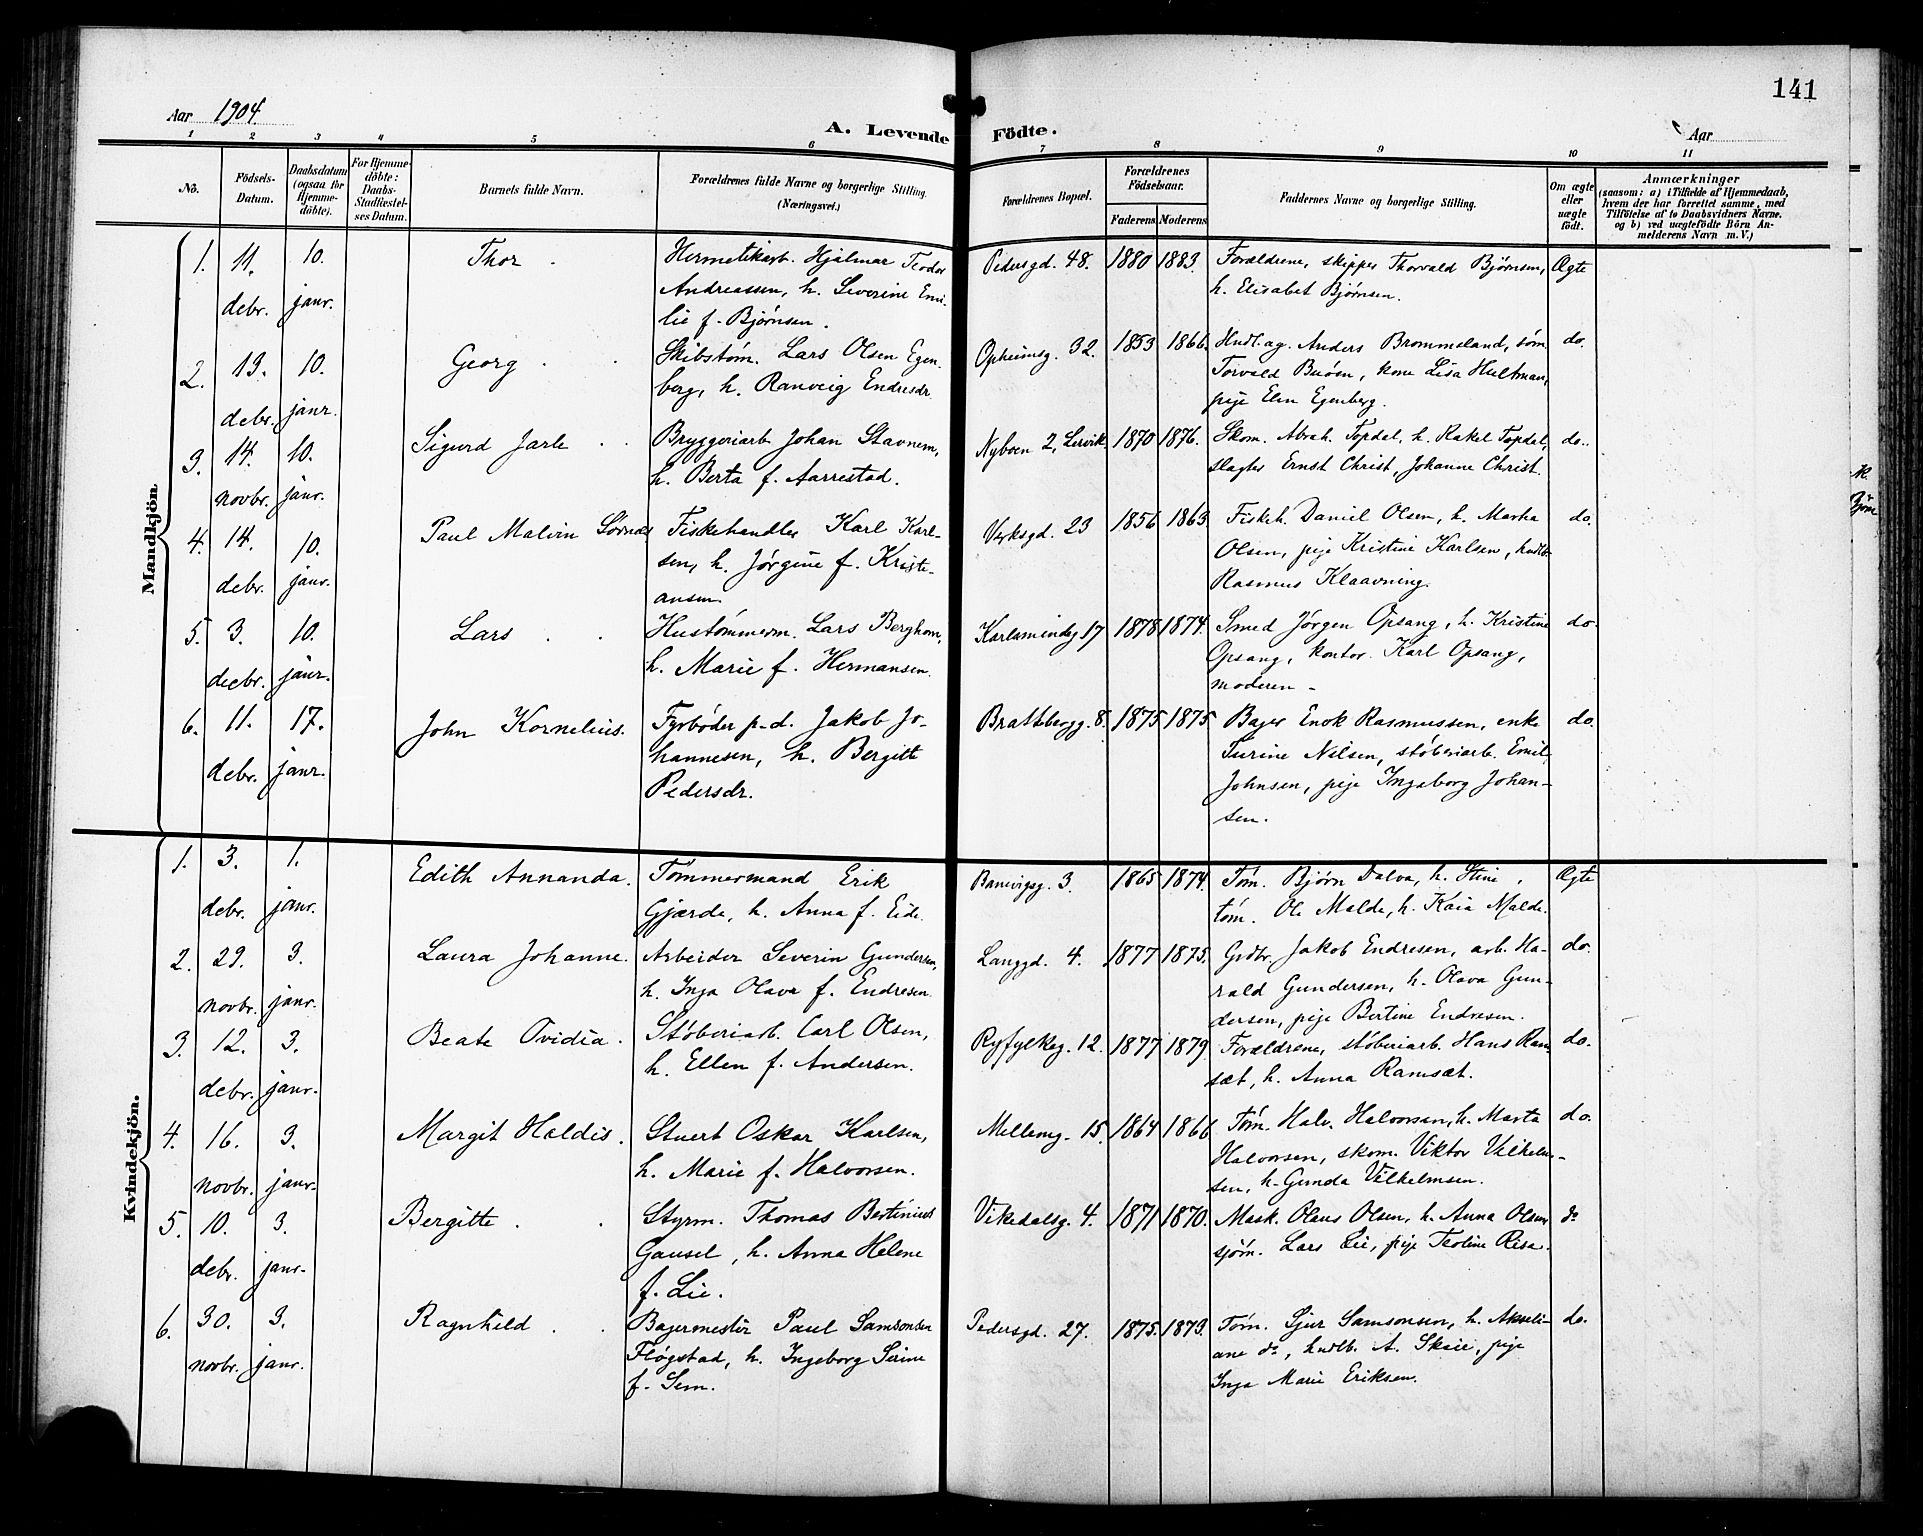 141
Aar 1904.
A. Levende Födte.
Aar
1 2 3 4 5 6 7 8 9 10 11
No.
Födsels-
Datum.
Daabsdatum
(ogsaa for
Hjemme-
döbte).
For Hjemme-
döbte:
Daabs-
Stadfæstel-
ses Datum.
Barnets fulde Navn.
Forældrenes fulde Navne og borgerlige Stilling.
(Næringsvei.)
Forældrenes Bopæl.
Forældrenes
Födselsaar.
Faderens Moderens
Faddernes Navne og borgerlige Stilling.
Om ægte
eller
uægte
födt.
Anmærkninger
(saasom: a) i Tilfælde af Hjemmedaab,
hvem der har forrettet samme, med
Tilföielse af to Daabsvidners Navne.
og b) ved uægtefödte Börn An-
melderens Navn m. V.)
Mandkjön
1. 11. debr. 10. janr. Thor
Hermetikarb. Hjalmar Teodor
Andreassen, h. Severine Emi-
lie f. Bjørnsen.
Pedersgd. 48. 1880 1883.
Forældrene, skipper Thorvald Bjørnsen,
h. Elisabet Bjørnsen.
Ægte
2. 13. debr. 10. janr. Georg
Skibstøm. Lars Olsen Egen-
berg, h. Ranveig Endresdr.
Opheimsg. 32. 1853 1866.
Hndl.ag. Anders Brommeland, søm.
Torvald Buøen, kone Lisa Hultman,
pige Elen Egenberg.
do.
3. 14. novbr. 10. janr. Sigurd Jarle
Bryggeriarb Johan Stavnem,
h. Berta f. Aarrestad.
Nyboen 2, Lervik. 1870 1876.
Skom. Abrah. Topdal, h. Rakel Topdal,
slagter Ernst Christ, Johanne Christ.
do.
4. 14. debr. 10. janr. Paul Malvin Sørnes
Fiskehandler Karl Karl-
sen, h. Jørgine f. Kristi-
ansen.
Verksgd. 23 1856 1863.
Fiskeh. Daniel Olsen, h. Marta
Olsen, pige Kristine Karlsen, hndlb.
Rasmus Klaavning.
do.
5. 3. decbr. 10. janr. Lars
Hustømmerm. Lars Berghom,
h. Marie f. Hermansen.
Karlsmindeg 17 1878 1874.
Smed Jørgen Opsang, h. Kristine
Opsang, kontor. Karl Opsang,
moderen -
do.
6. 11. debr. 17. janr. John Kornelius.
Fyrbøder p-d. Jakob Jo-
hannesen, h. Bergitte
Pedersdr.
Brattbergg. 8. 1875 1875
Bager Enok Rasmussen, enke
Turine Nilsen, støberiarb. Emil
Johnsen, pige Ingeborg Johan-
sen.
do.
Kvindekjön.
1. 3. debr. 1. janr. Edith Annanda.
Tømmermand Erik
Gjærde, h. Anna f. Eide.
Banevigsg. 3. 1865 1874.
Tøm. Bjørn Dalva, h. Stine,
tøm. Ole Malde, h. Kaia Malde.
Ægte
2. 29. novbr. 3. janr. Laura Johanne.
Arbeider Severin Gundersen,
h. Inga Olava f. Endresen.
Langgd. 4. 1877 1875.
Grdbr. Jakob Endresen, arb. Ha-
rald Gundersen, h. Olava Gun-
dersen, pige Bertine Endresen.
do.
3. 12. debr. 3. janr. Beate Ovidia.
Støberiarb. Carl Olsen,
h. Ellen f. Andersen.
Ryfylkeg. 12. 1877 1879.
Forældrene, støberiarb. Hans Ram-
sæt, h. Anna Ramsæt.
do.
4. 16. novbr. 3. janr. Margit Haldis.
Stuert Oskar Karlsen,
h. Marie f. Halvorsen.
Mellemg. 15. 1864 1866
Tøm. Halv. Halvorsen, h. Marta
Halvorsen, skom. Viktor Vilhelm-
sen, h. Gunda Vilhelmsen.
do.
5. 10. debr. 3. janr. Bergitte
Styrm. Thomas Bertinius
Gausel, h. Anna Helene
f. Lie.
Vikedalsg. 4. 1871 1870.
Mask. Olaus Olsen, h. Anna Olsen
sjøm. Lars Lie, pige Teoline Risa.
do
6. 30. novbr. 3. janr. Ragnhild
Bagermester Paul Samsonsen
Fløgstad, h. Ingeborg Serine
f. Sem.
Pedersgd. 27. 1875. 1873.
Tøm. Sjur Samsonsen, h. Akseli-
ane do, hndlb. A. Skaie, pige
Inga Marie Eriksen.
do.